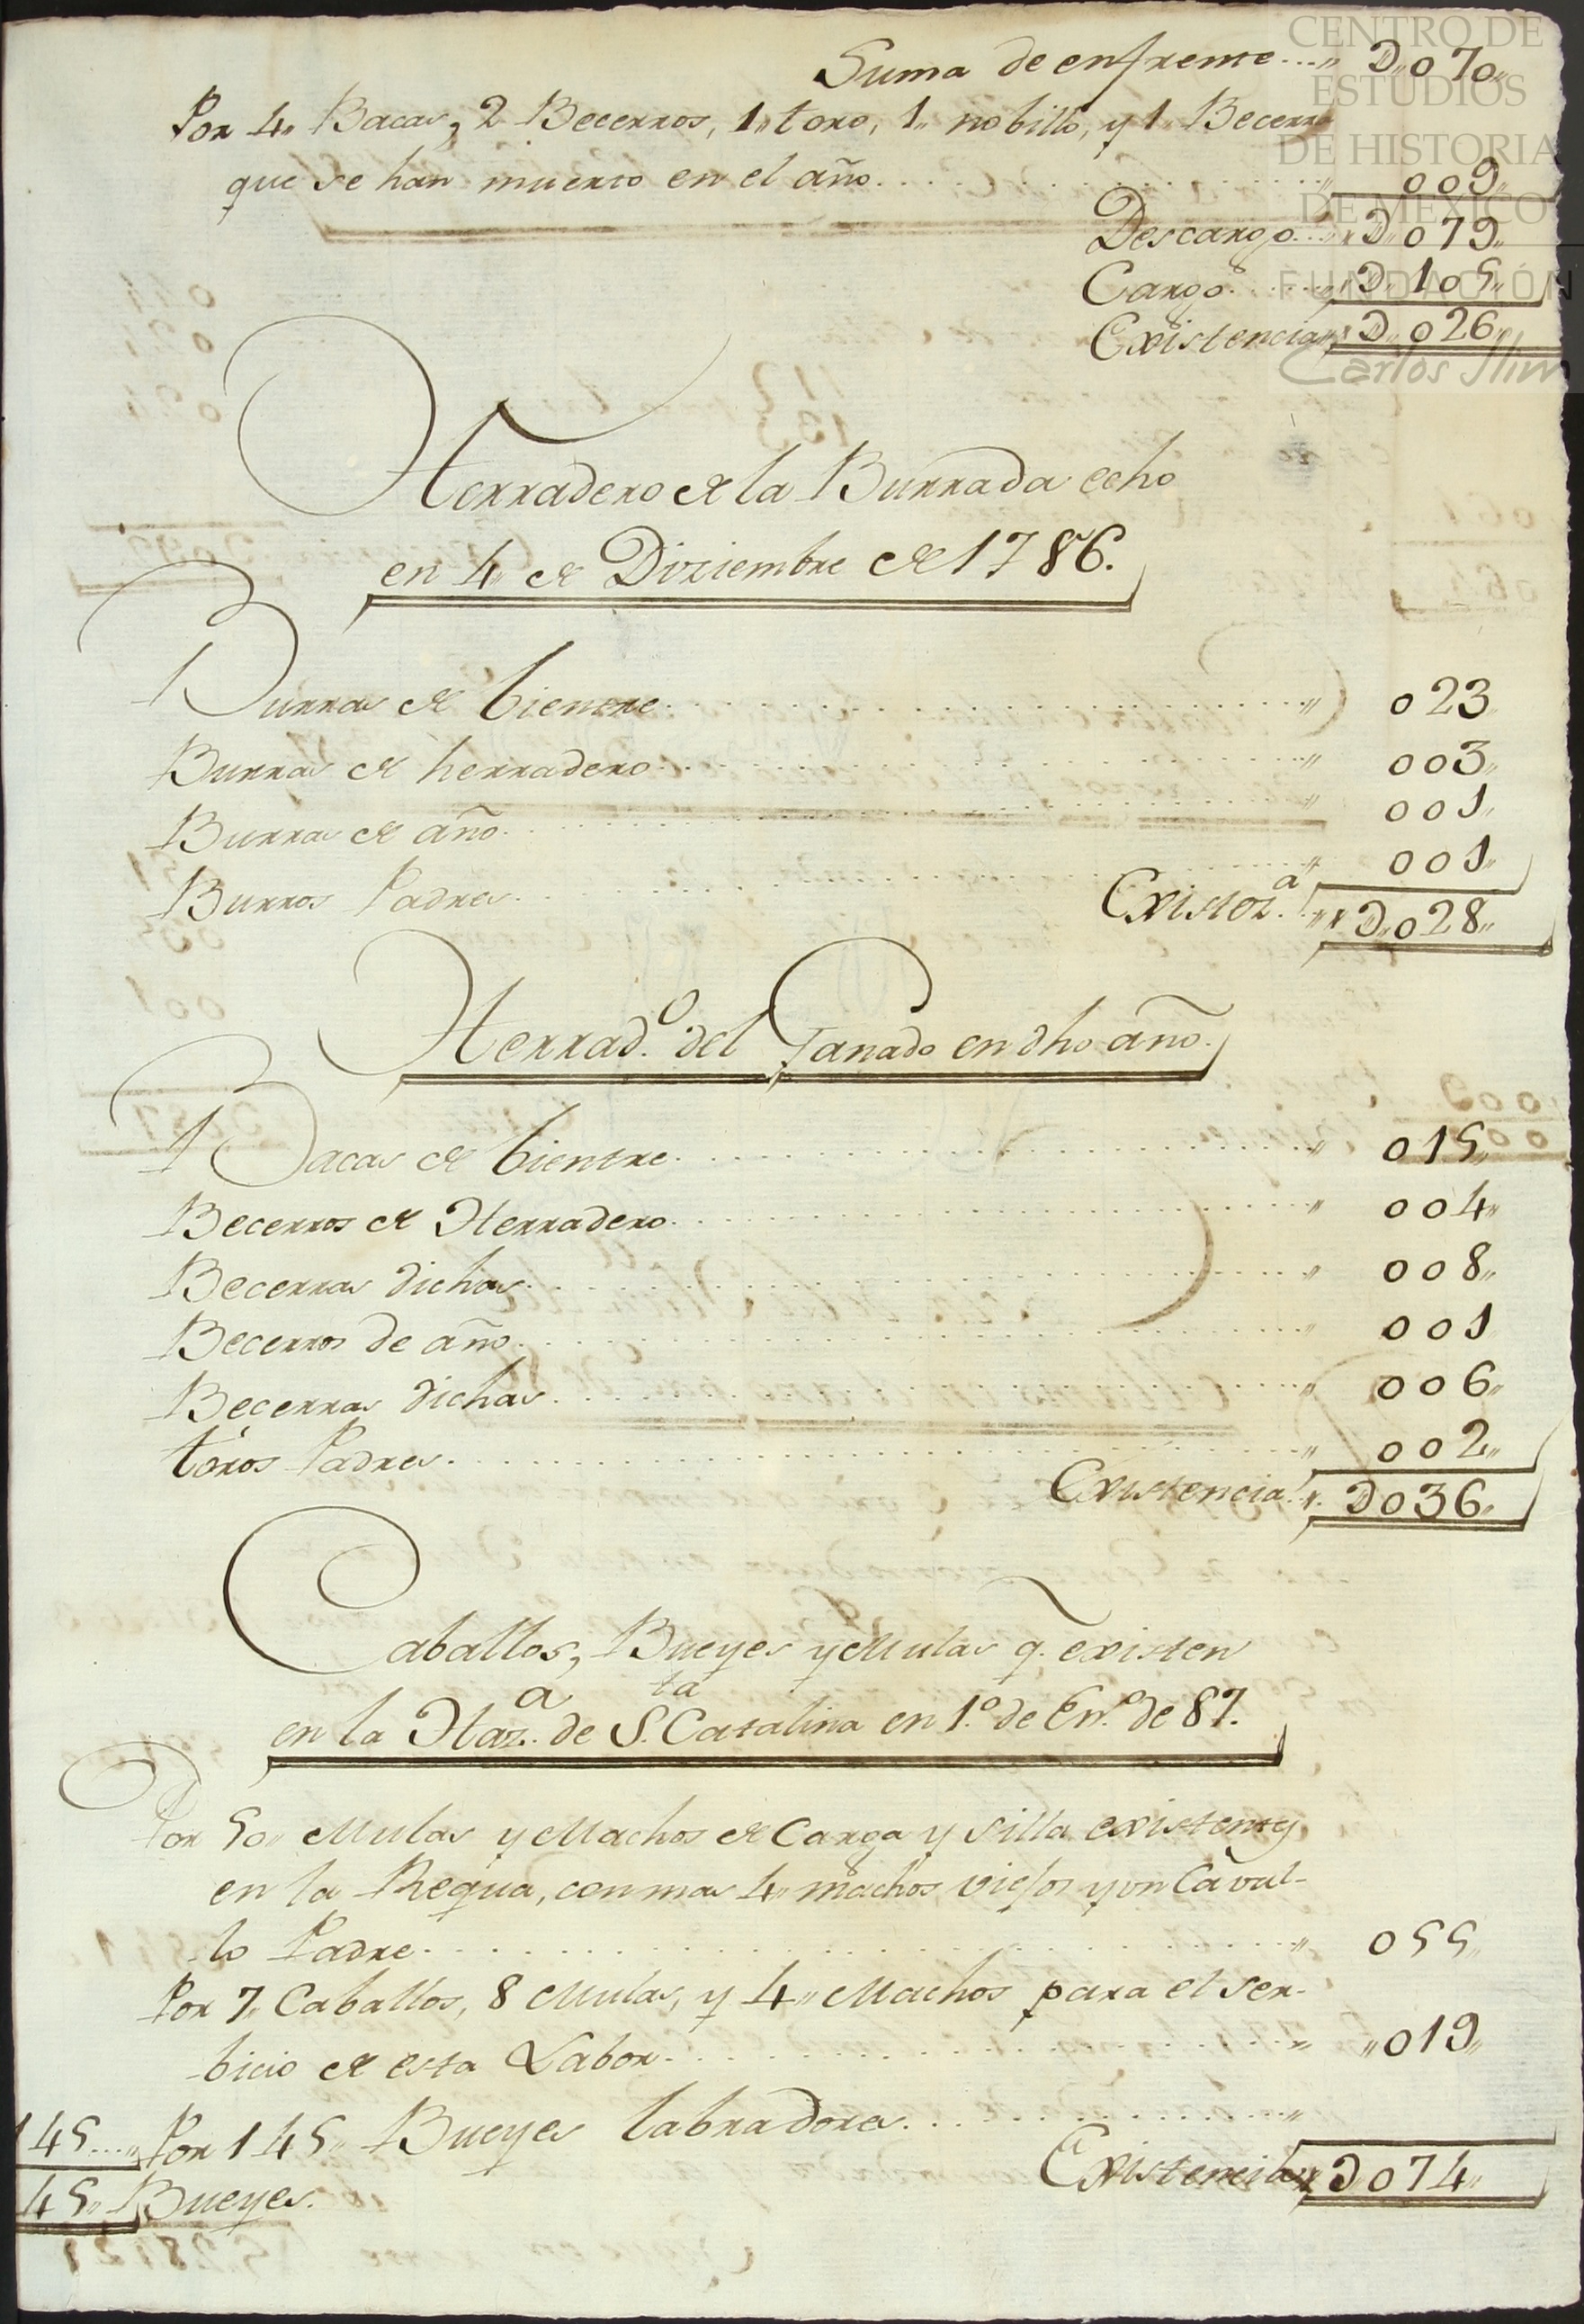 Suma de enfrente....,, D,,070,,
Por 4,, Bacas, 2 Becerros, 1,, toro, 1,, nobillo, y 1 Becerra
que se han muerto en el año. . . . . . . . . ,, 009,,
Descargo...,, D,,079,,
Cargo.......,, D,,105,,
Existencia,, D,,026,,
Herradero de la Burrada echo
en 4,, de Diziembre de 1786.
Burras de bientre. . . . . . . . . ,, 023
Burras de herradero. . . . . . . . . ,, 003,,
Burras de año. . . . . . . . . ,, 001,,
Burros Padres. . . . . . . . . ,, 001,,
Existez.ª ,, D,,028,,
Herrad.º del Ganado en dho año.
Bacas de bientre. . . . . . . . . ,, 015,,
Becerros de Herradero. . . . . . . . . ,, 004,,
Becerras dichas. . . . . . . . . ,, 008,,
Becerros de año. . . . . . . . . ,, 001
Becerras dichas. . . . . . . . . ,, 006,,
toros Padres. . . . . . . . . ,, 002,,
Existencia.,, D036,,
Caballos, Bueyes y Mulas q. existen
en la Haz.ª de S.ta Catalina en 1.º de En.º de 87.
Por 50,, Mulas y Machos de Carga y silla existentes
en la Requa, con mas 4,, machos viejos y un Caval-
lo Padre. . . . . . . . . ,, 055,,
Por 7,, Caballos, 8 Mulas, y 4,, Machos para el ser-
bicio de esta Labor. . . . . . . . . ,, ,,019,,
145....,, Por 145,, Bueyes labradores. . . . . . . . . ,,
Existencia,, D074,,
45,, Bueyes.
CENTRO DE
ESTUDIOS
DE HISTORIA
DE MÉXICO
FUNDACIÓN
Carlos Slim